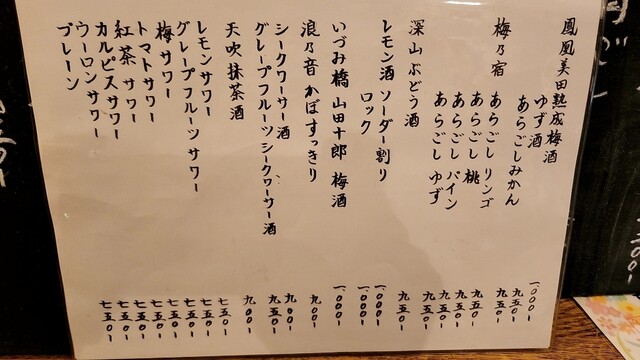 鳳凰美田熟成梅酒 一、〇〇〇ー
ゆず酒 九五〇ー
あらごしみかん 九五〇ー
梅乃宿 あらごしリンゴ 九五〇ー
あらごし桃 九五〇ー
あらごしパイン 九五〇ー
あらごしゆず 九五〇ー
深山ぶどう酒 九五〇ー
レモン酒 ソーダー割り 一、〇〇〇ー
ロック 一、〇〇〇ー
いづみ橋 山田十郎 梅酒 一、〇〇〇ー
浪乃音 かぼすっきり 九〇〇ー
シークワーサー酒 九〇〇ー
グレープフルーツシークワーサー酒 九五〇ー
天吹 抹茶酒 九〇〇ー
レモンサワー 七五〇ー
グレープフルーツサワー 七五〇ー
梅サワー 七五〇ー
トマトサワー 七五〇ー
紅茶サワー 七五〇ー
カルピスサワー 七五〇ー
ウーロンサワー 七五〇ー
プレーン 七五〇ー